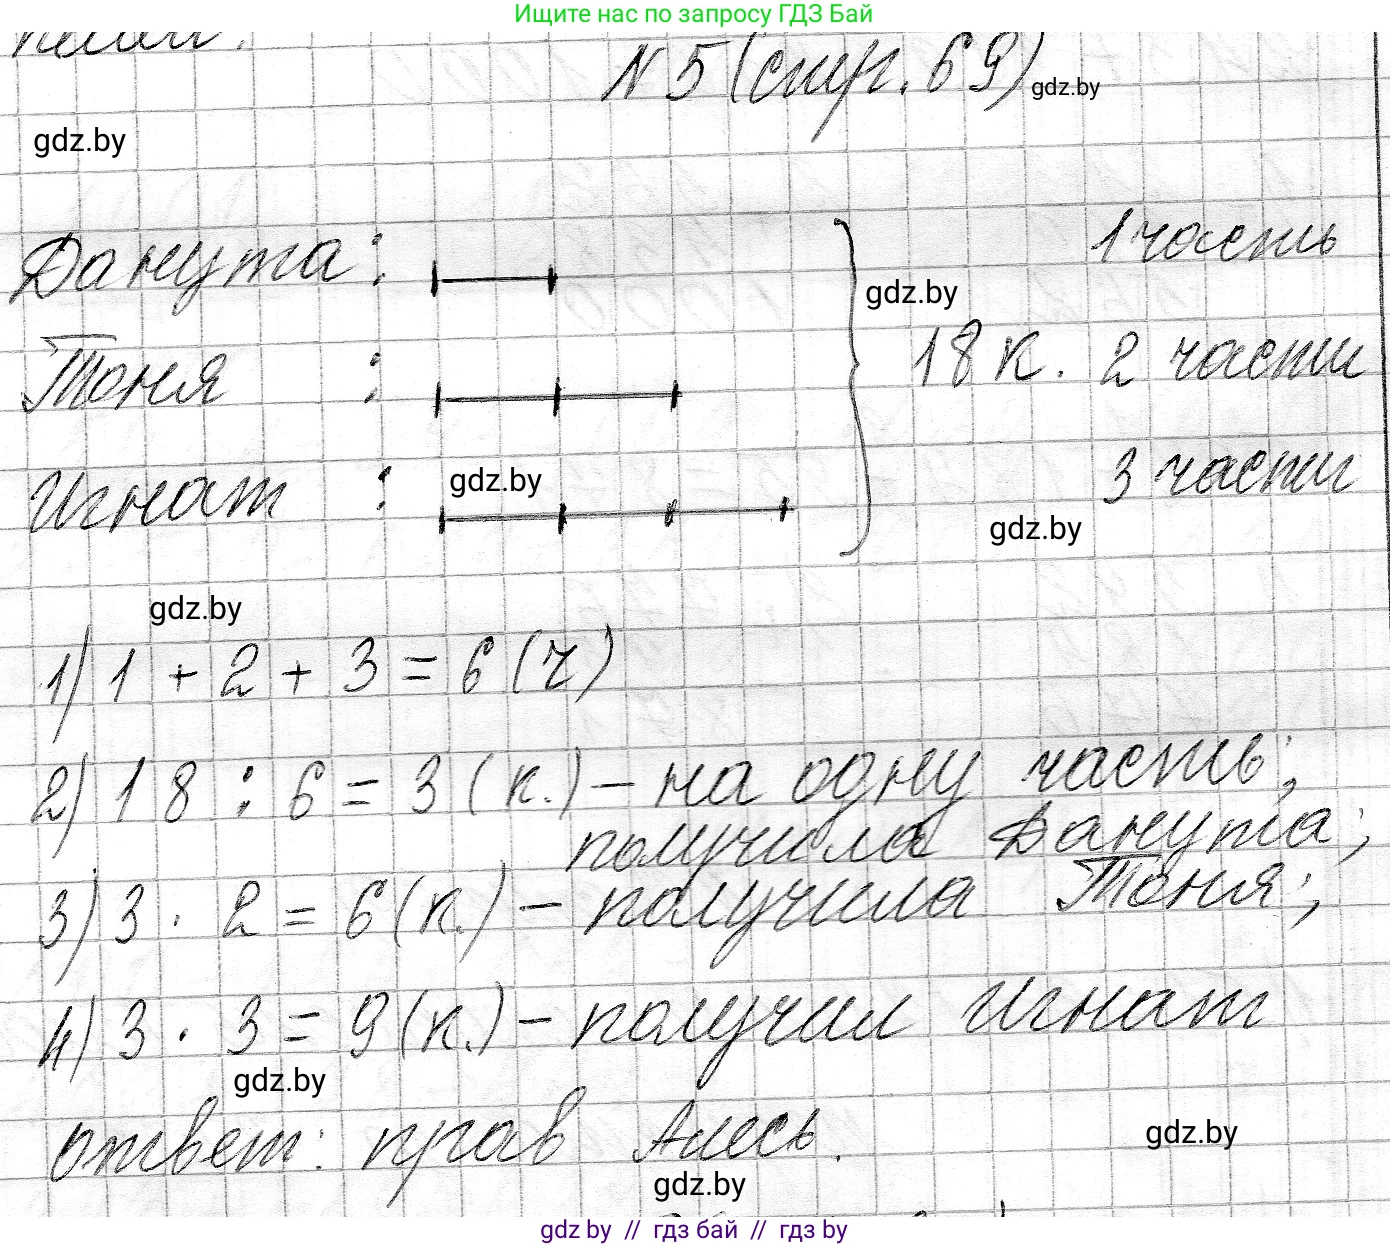 Ищите нас по запросу ГДЗ Бай
N 5 (стр. 69)
gdz.by
gdz.by
Данута: 1 часть
gdz.by
Тоня : 18 к. 2 части
Игнат : 3 части
gdz.by
gdz.by
gdz.by
1) 1 + 2 + 3 = 6 (ч)
2) 18 : 6 = 3 (к.) – на одну часть;
получила Данута;
3) 3 · 2 = 6 (к.) – получила Тоня;
4) 3 · 3 = 9 (к.) – получил Игнат
gdz.by
ответ: прав Алесь.
gdz.by
gdz.by
gdz by // гдз бай // гдз by